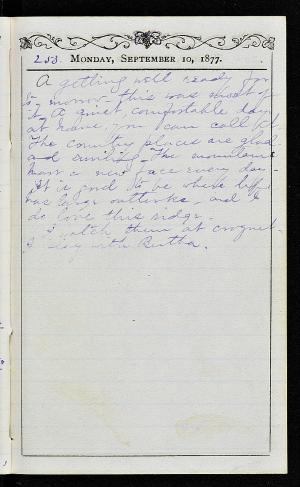 253. MONDAY, SEPTEMBER 10, 1877.
A getting well ready for
to-morrow - this was most of
it. A quiet, comfortable day
at home, you can call it.
The country places are glad
and smiling. The mountains
have a new face every day.
It is good to be where life
has large outlooks, and I
do love this ridge.
I watch them at croquet.
I play with Bertha.